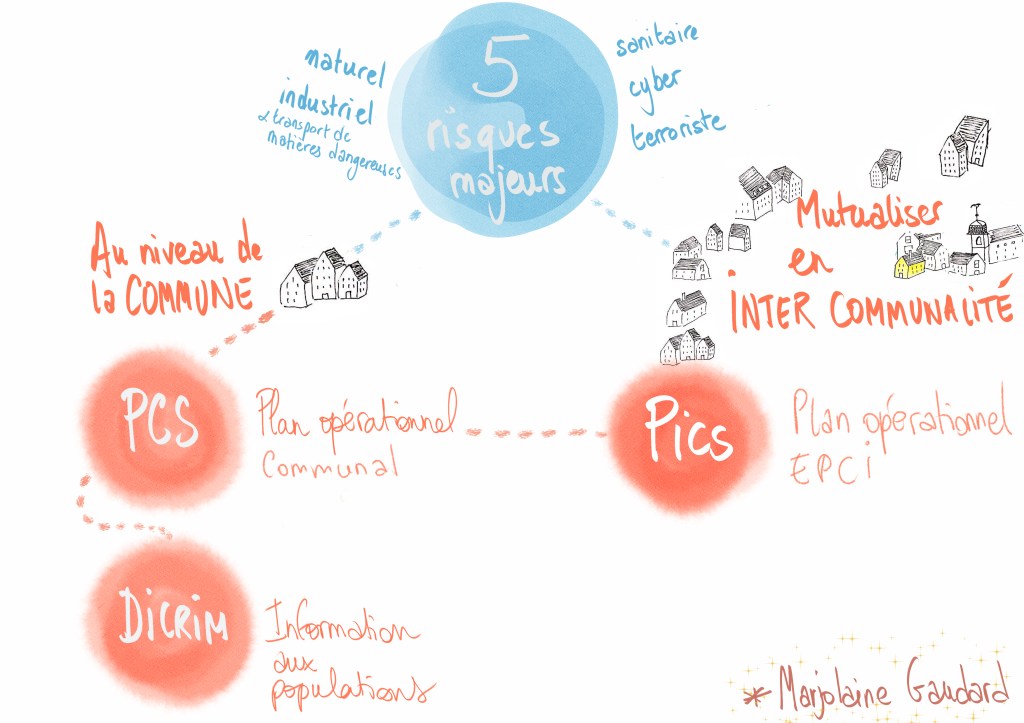 5
risques
majeurs
naturel
industriel
& transport de
matières dangereuses
sanitaire
cyber
terroriste
Au niveau de
la COMMUNE
Mutualiser
en
INTER COMMUNALITÉ
PCS
Plan opérationnel
Communal
Pics
Plan opérationnel
EPCi
DiCRIM
Information
aux
populations
* Marjolaine Gaudard